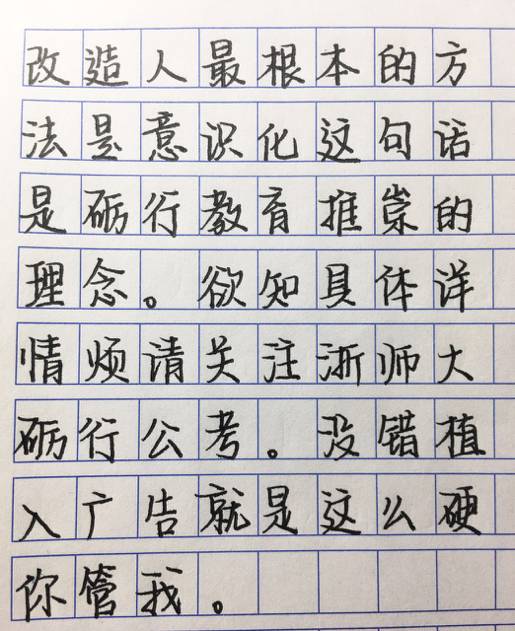 改造人最根本的方
法是意识化这句话
是砺行教育推崇的
理念。欲知具体洋
情烦请关注浙师大
砺行公考。没错植
入广告就是这么硬
你管我。